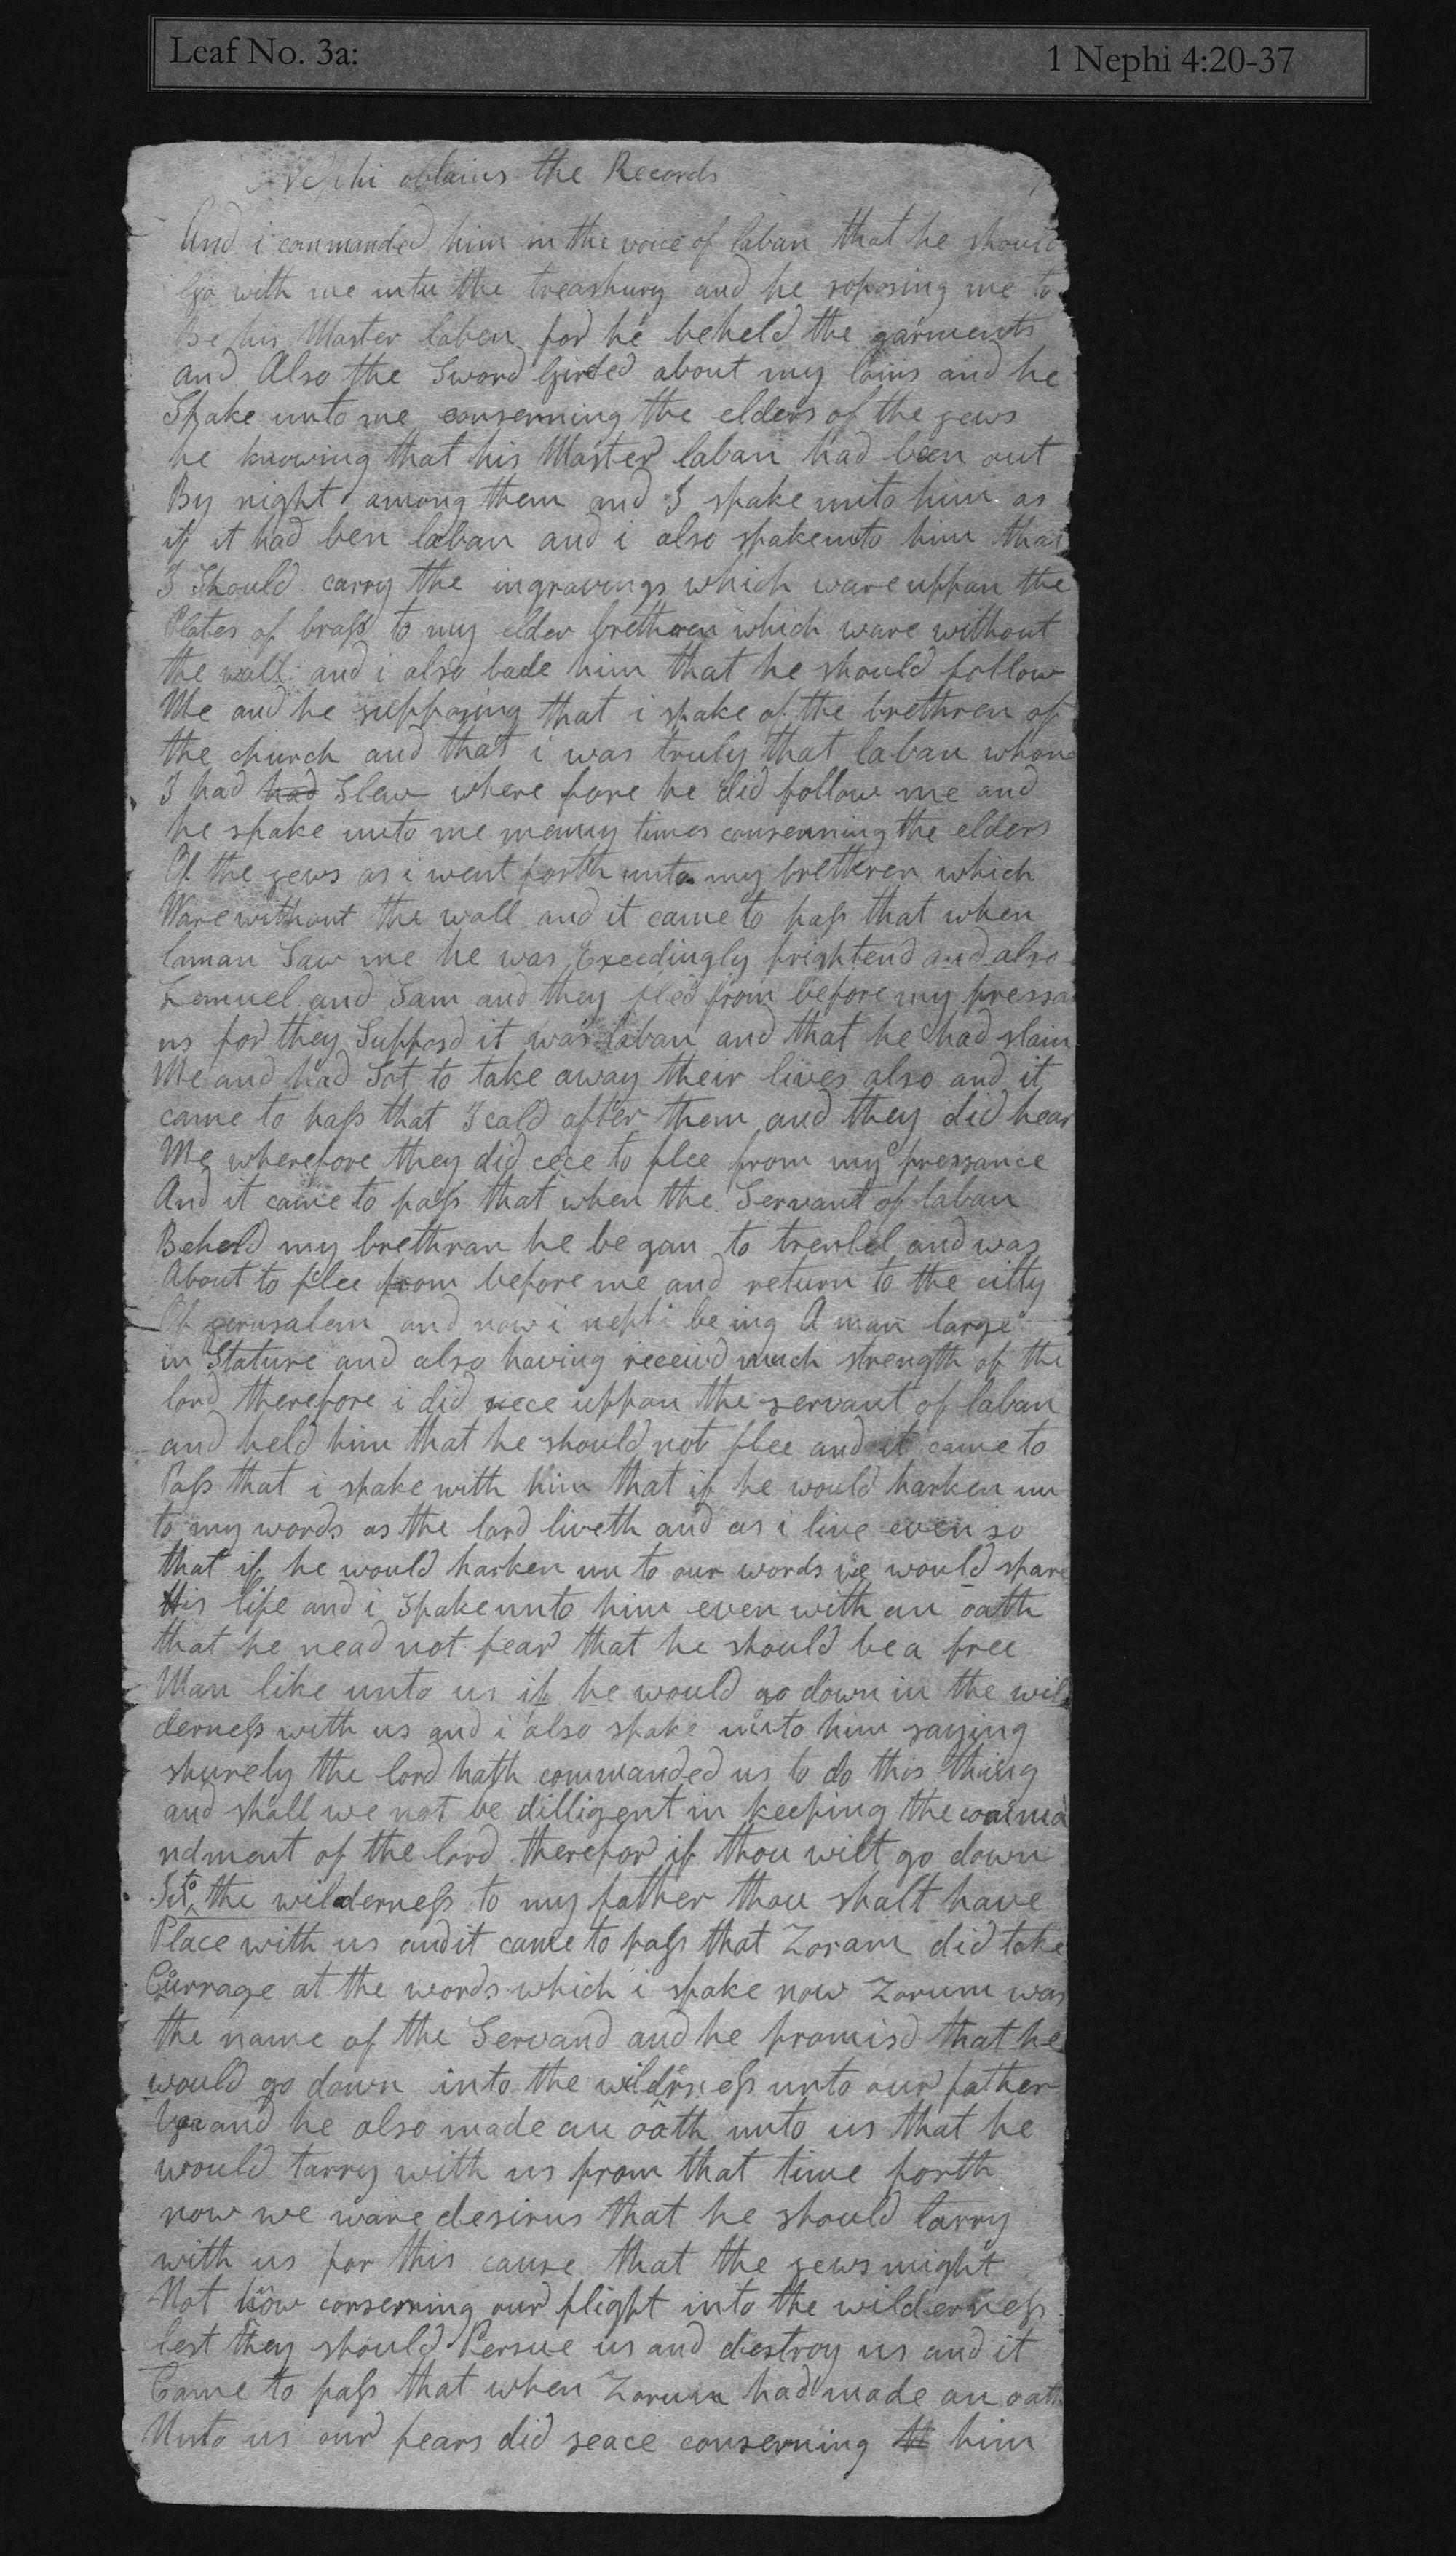 Leaf No. 3a: 1 Nephi 4:20-37
Nephi obtains the Records
And i commanded him in the voice of laban that he should
Go with me intu the treashury and he soposing me to
Be his Master laben for he beheld the garments
and Also the Sword Girded about my loins and he
Spake unto me conserning the elders of the jews
he knowing that his Master laban had been out
By night among them and I spake unto him as
if it had ben laban and i also spake unto him that
I Should carry the ingravings which ware uppon the
Plates of brass to my elder bretheren which ware without
the wall and i also bade him that he should follow
Me and he supposing that i spake of the brethren of
the church and that i was truly that laban whom
I had had Slew where fore he did follow me and
he spake unto me menny times conserning the elders
Of the jews as i went forth unto my bretheren which
Ware without the wall and it came to pass that when
laman Saw me he was Exeedingly frightend and also
Lemuel and Sam and they fled from before my pressa
ns for they Supposd it was laban and that he had slain
Me and had Sot to take away their lives also and it
came to pass that I cald after them and they did hear
Me wherefore they did cece to flee from my pressance
And it came to pass that when the Servant of laban
Beheld my brethran he be gan to trenbel and was
About to flee from before me and return to the citty
Of jerusalem and now i nephi be ing A man large
in Stature and also having receivd much strength of the
lord therefore i did siece uppon the servant of laban
and held him that he should not flee and it came to
Pass that i spake with him that if he would harken un
to my words as the lord liveth and as i live even so
that if he would harken un to our words we would spare
His life and i Spake unto him even with an oath
that he nead not fear that he should be a free
Man like unto us if he would go down in the wil
derness with us and i also spake unto him saying
shurely the lord hath commanded us to do this thing
and shall we not be dilligent in keeping the comma
ndment of the lord therefor if thou wilt go down
Into the wilderness to my father thou shalt have
Place with us and it came to pass that Zoram did take
Currage at the words which i spake now Zorum was
the name of the Servand and he promisd that he
would go down into the wilderness unto our father
and he also made an oath unto us that he
would tarry with us from that time forth
now we ware desirus that he should tarry
with us for this cause that the jews might
Not know conserning our flight into the wilderness
lest they should Persue us and destroy us and it
Came to pass that when Zorum had made an oath
Unto us our fears did seace conserning him